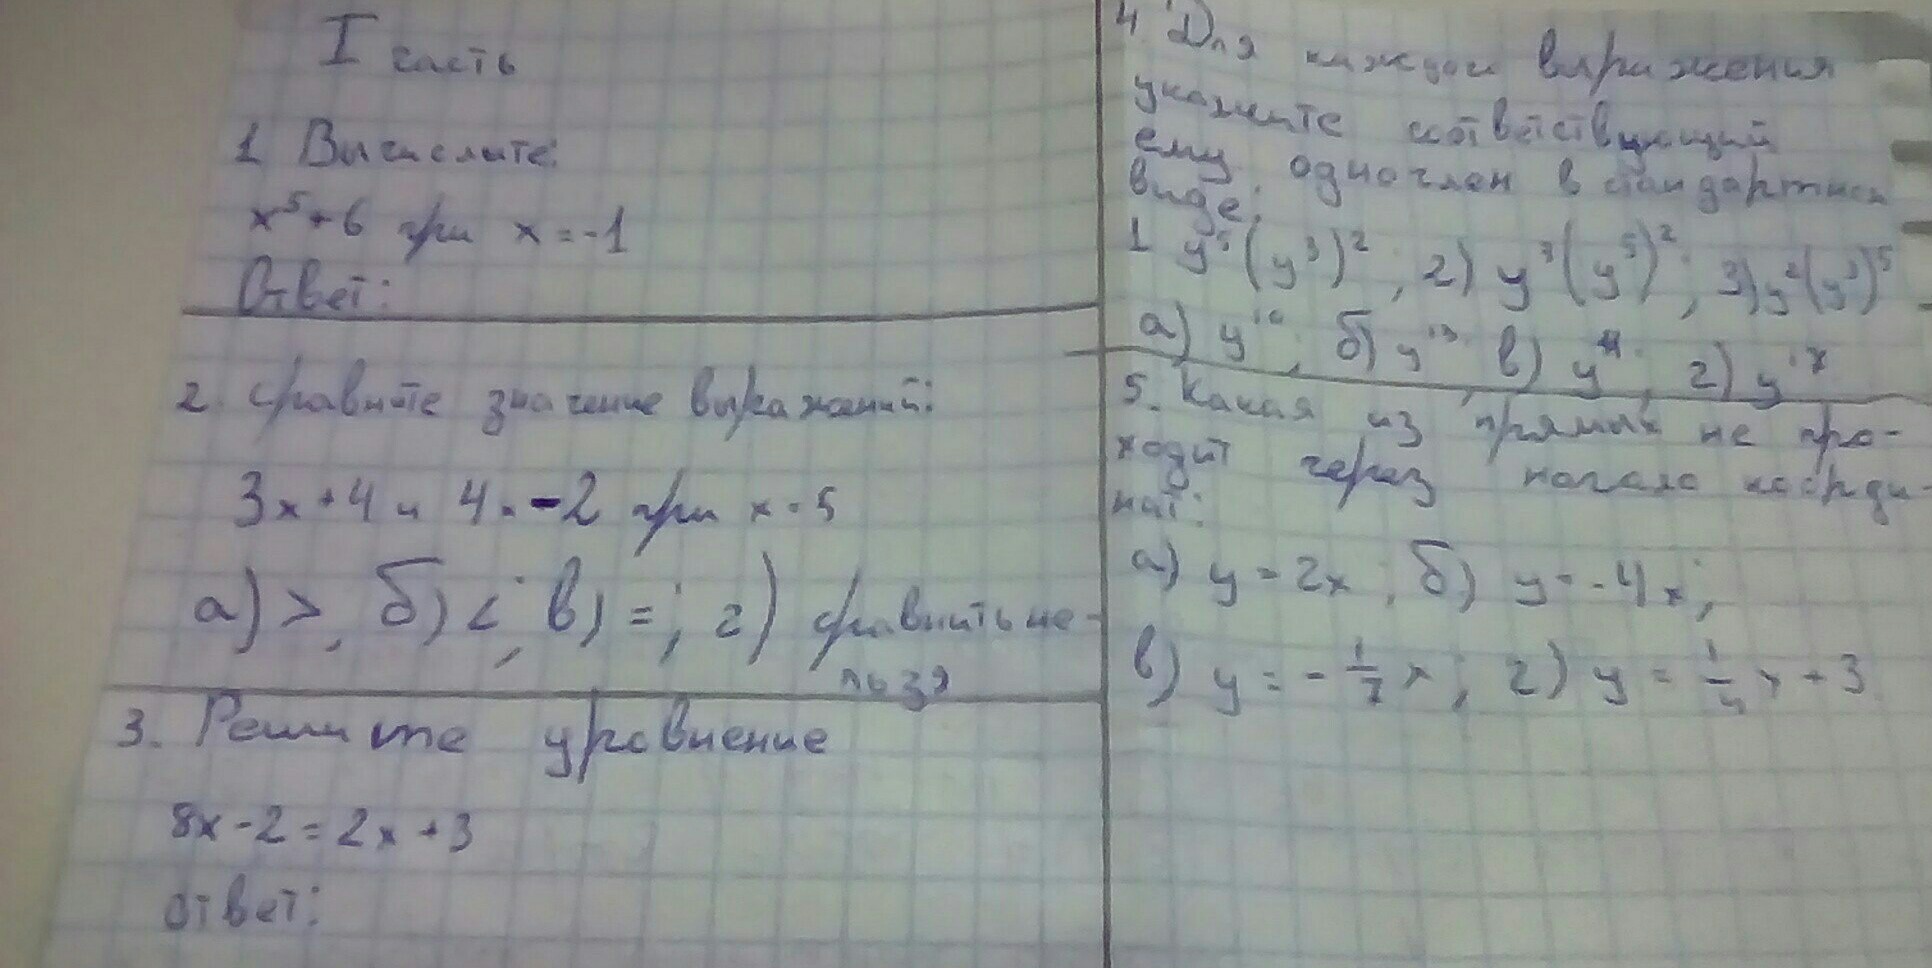 I часть
1 Вычислите:
x⁵+6 при x=-1
Ответ:
2. Сравните значение выражений:
3x+4 и 4x-2 при x=5
а) >; б) <; в) =; г) сравнить не-
льзя
3. Решите уровнение
8x-2=2x+3
ответ:
4. Для каждого выражения
укажите соответствующий
ему одночлен в стандартном
виде:
1 y⁵(y³)²; 2) y³(y⁵)²; 3) y²(y³)⁵
а) y¹⁰; б) y¹³ в) y¹¹; г) y¹⁷
5. Какая из прямых не про-
ходит через начало коорди-
нат:
а) y=2x; б) y=-4x;
в) y=-1/7x; г) y=1/4x+3